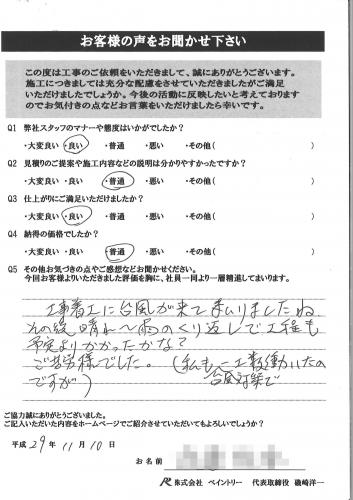 お客様の声をお聞かせ下さい
この度は工事のご依頼をいただきまして、誠にありがとうございます。
施工につきましては充分な配慮をさせていただきましたがご満足
いただけましたでしょうか。今後の活動に反映したいと考えております
のでお気付きの点などお言葉をいただけましたら幸いです。
Q1 弊社スタッフのマナーや態度はいかがでしたか?
・大変良い ・良い ・普通 ・悪い ・その他( )
Q2 見積りのご提案や施工内容などの説明は分かりやすかったですか?
・大変良い ・良い ・普通 ・悪い ・その他( )
Q3 仕上がりにご満足いただけましたか?
・大変良い ・良い ・普通 ・悪い ・その他( )
Q4 納得の価格でしたか?
・大変良い ・良い ・普通 ・悪い ・その他( )
Q5 その他お気づきの点やご感想などお聞かせください。
今回お客様よりいただきました評価を胸に、社員一同より一層精進してまいります。
工事着工に台風が来て まいりましたね
その後 晴れ〜雨のくり返しで工程も
予定よりかかったかな?
ご苦労様でした。(私も一工数働いたの
ですが) 台風対策で
ご協力誠にありがとうございました。
ご記入いただいた内容をホームページでご紹介させていただいてもよろしいでしょうか?
平成 29年 11月 10日
お名前
株式会社 ペイントリー 代表取締役 磯崎洋一